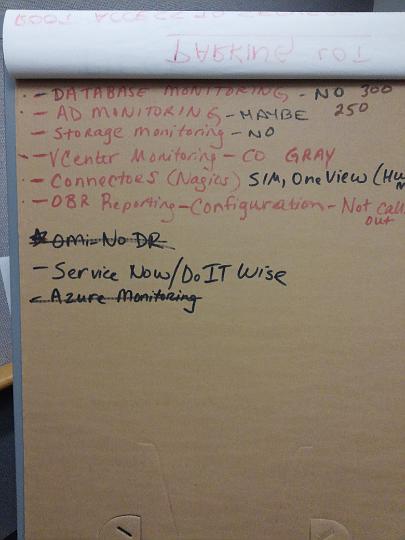 PARKING LOT
- DATABASE MONITORING - NO 300
- AD MONITORING - MAYBE 250
- Storage monitoring - NO
- VCenter Monitoring - CO GRAY
- Connectors (Nagios) SIM, OneView (Hu
- OBR Reporting - Configuration - Not call
out
* OMi - No DR
- Service Now/DoIT Wise
- Azure Monitoring